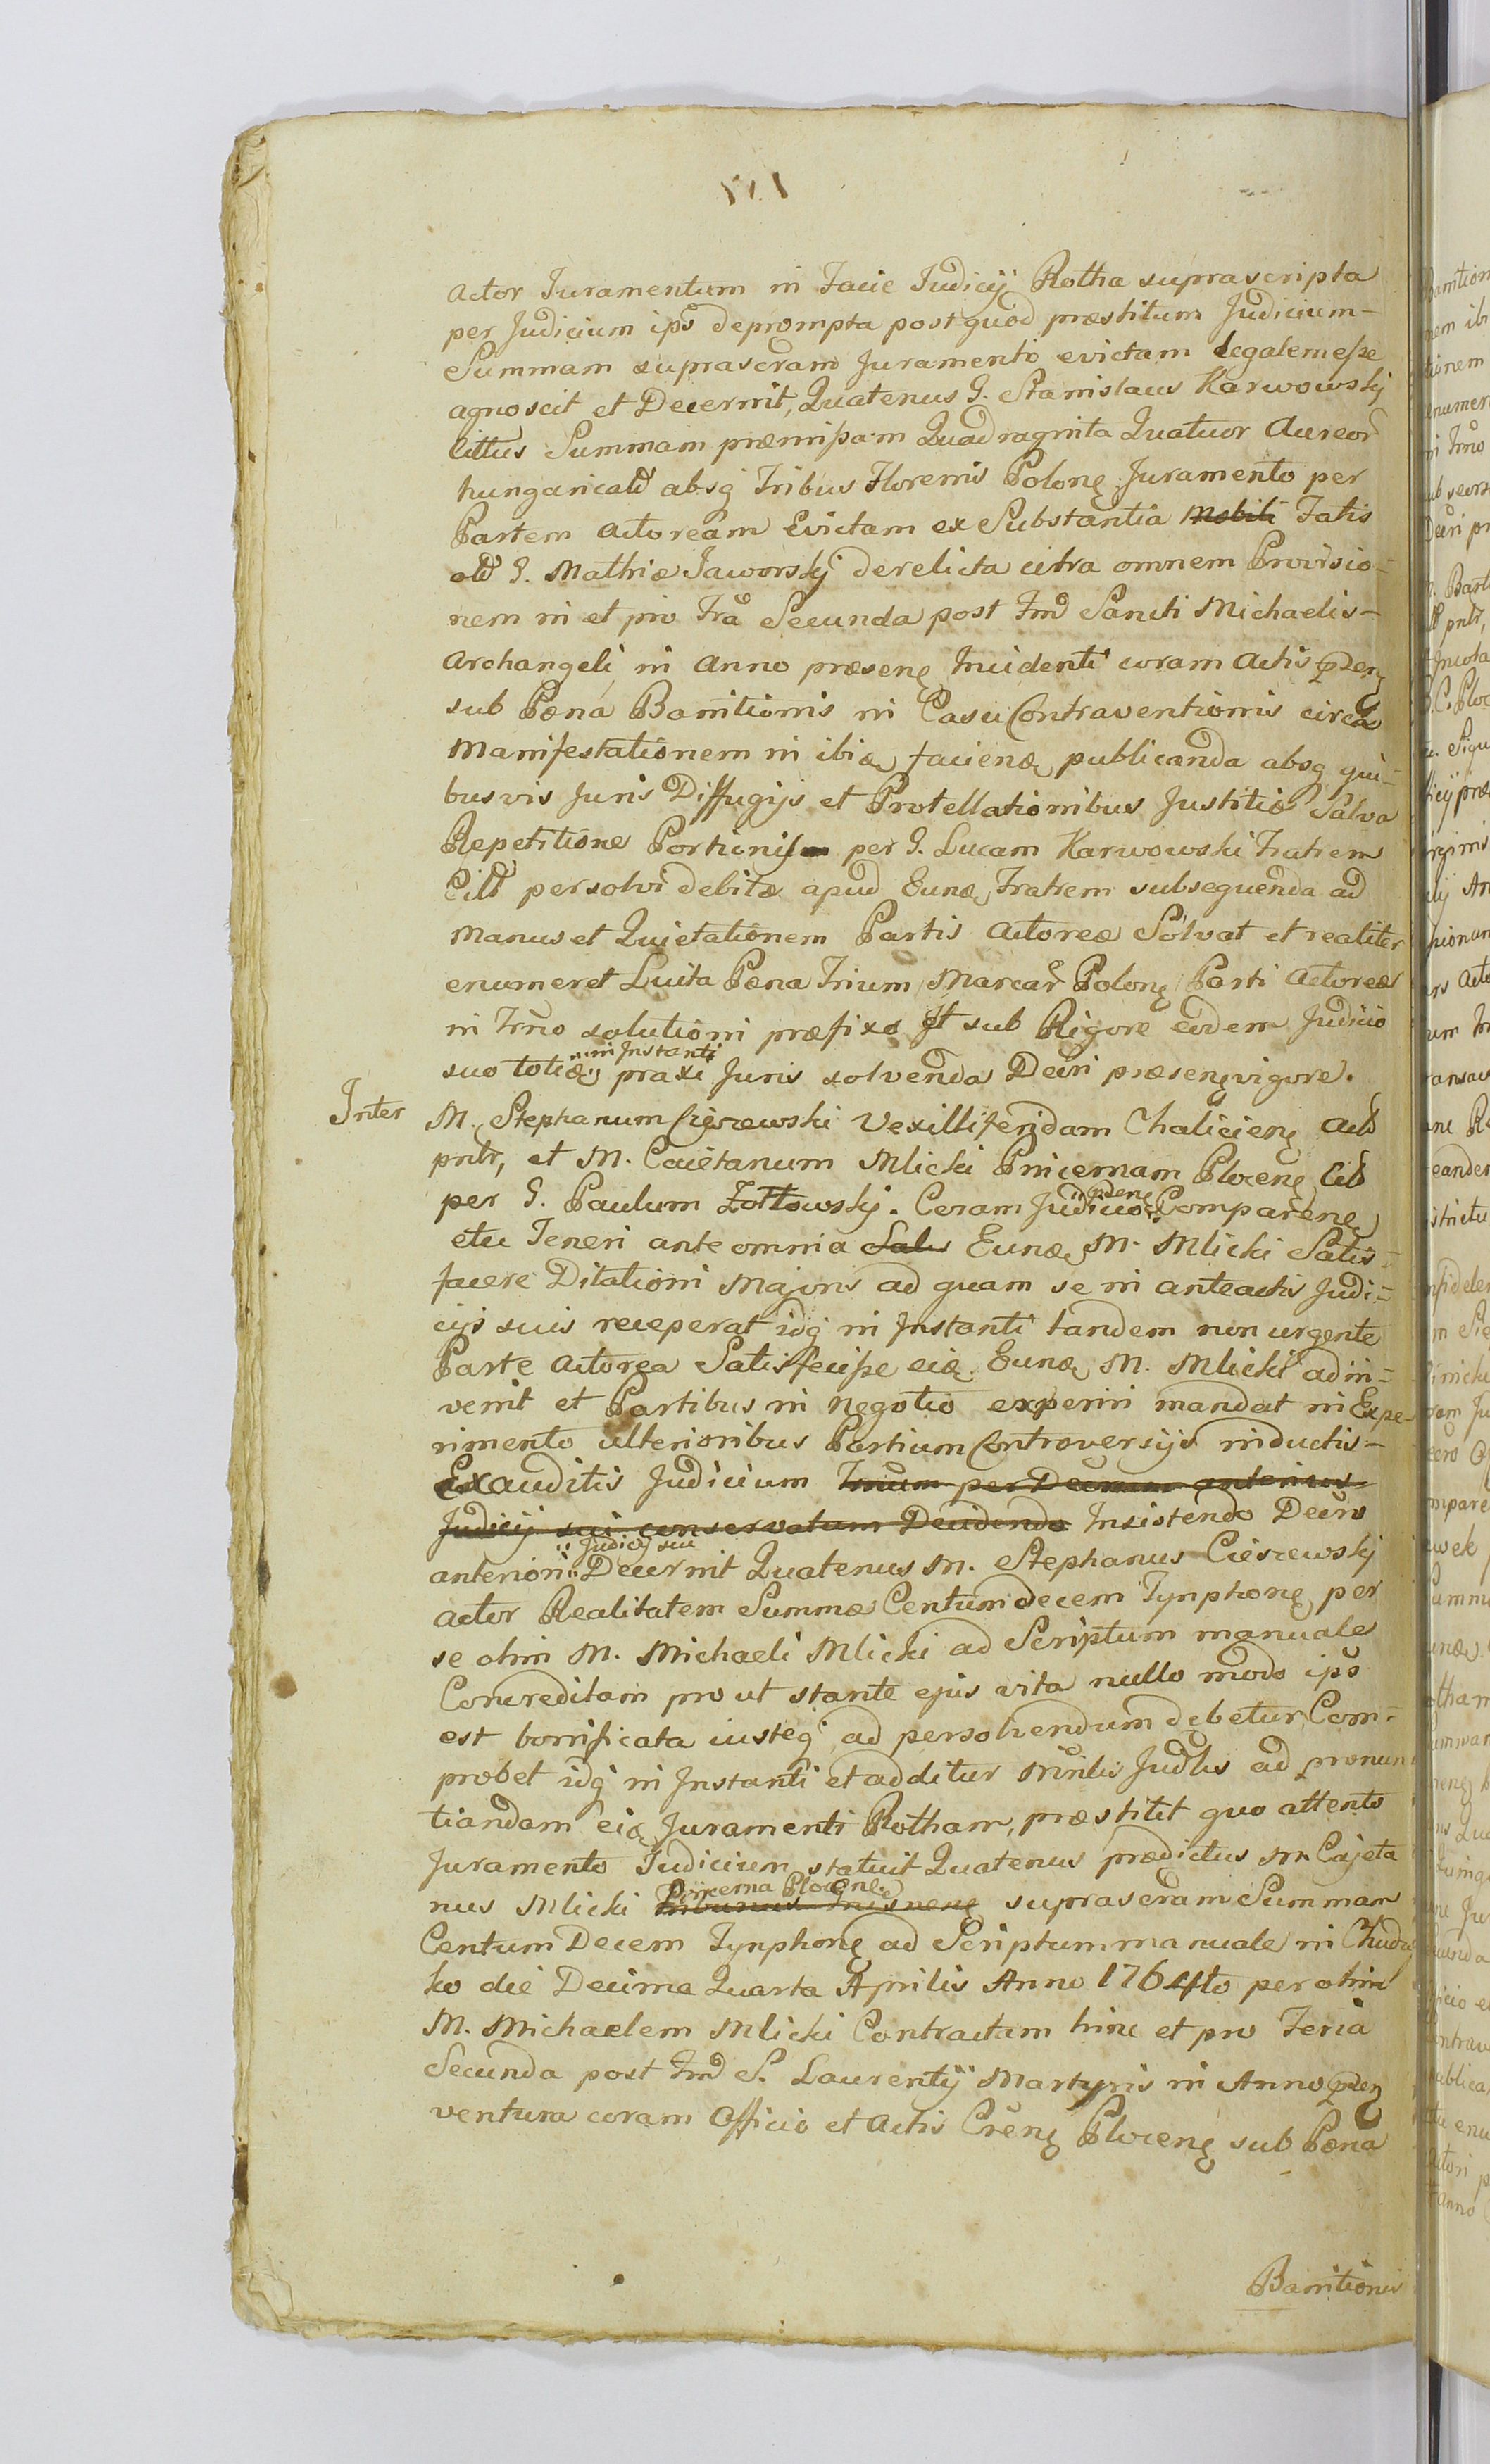 Actor Juramentum in Facie Judicij Rotha suprascripta
per Judicium ipsi deprompta postquod præstitum Judicium-
Summam suprascram Juramento evictam legalem esse
agnoscit et Decernit, Quatenus G. Stanislaus Karwowskij
Cittus Summam præmissam Quadraginta Quatuor Aureor
hungaricald absq Tribus Florenis Polone Juramento per
Partem Actoream Evictam ex Substantia Mobili Fatis
old G. Mathiæ Jaworskij derelicta citra omnem Provisio=
nem in et pro Fra Secunda post Fm Sancti Michaelis-
Archangeli in Anno præsene Incidenti coram Actis pden
sub Pæna Bannitionis in Casu Contraventionis circa
Manifestationem in ibiæ faciene publicanda absq qui=
busvis Juris Diffugijs et Protellationibus Justitiæ Salva
Repetitione Portionis per G. Lucam Karwowski Fratrem
Citt persolvi debitæ apud Eunæ Fratrem subsequenda ad
Manus et Quietationem Partis Actoreæ Solvat et realiter
enumeret Luita Pæna Trium Marcar Polone Parti Actoreæ
in Trno solutioni præfixo et sub Rigore eodem Judicio
suo totiæ in Instanti praxi Juris solvenda Decri præsene vigore.
Inter M. Stephanum Cieszewski Vexilliferidam Chaliciene Act
pntr, et M. Caietanum Mlicki Pincernam Plocene Cit
per G. Paulum Zołtowskij. Coram Judicio pdene Comparene
etu Teneri ante omnia Salu Eunæ M. Mlicki Satis=
facere Ditationi Majoris ad quam se in anteactis Judi=
cijs suis receperat idq in Instanti tandem non urgente
Parte Actorea Satisfecisse eiæ Eunæ M. Mlicki adin=
venit et Partibus in Negotio experiri mandat in Expe
rimento ulterioribus Partium Controversijs inductis-
Exauditis Judicium Trnum per Decrum anterius
Judicij sui conservatum Decidendo Insistendo Decro
anteriori Judicij sui Decernit Quatenus M. Stephanus Cieszewskij
Actor Realitatem Summæ Centum decem Tynphone per
se olim M. Michaeli Mlicki ad Scriptum manuale
Concreditam pro ut stante ejus vita nullo modo ipsi
est bonificata iusteq ad persolvendum debetur Com=
probet idq in Instanti et additur Minlis Judlis ad pronun
tiandam eiæ Juramenti Rotham, præstitit quo attento
Juramento Judicium statuit Quatenus prædictus M. Cajeta
nus Mlicki Pincerna Plocene suprascram Summam
Centum Decem Tynphone ad Scriptum manuale in Chudz
ko die Decima Quarta Aprilis Anno 1764to per olim
M. Michaelem Mlicki Contractam hinc et pro Feria
Secunda post Fm S. Laurentij Martyris in Anno pden
ventura coram Officio et Actis Crene Plocene sub Pæna
Bannitionis